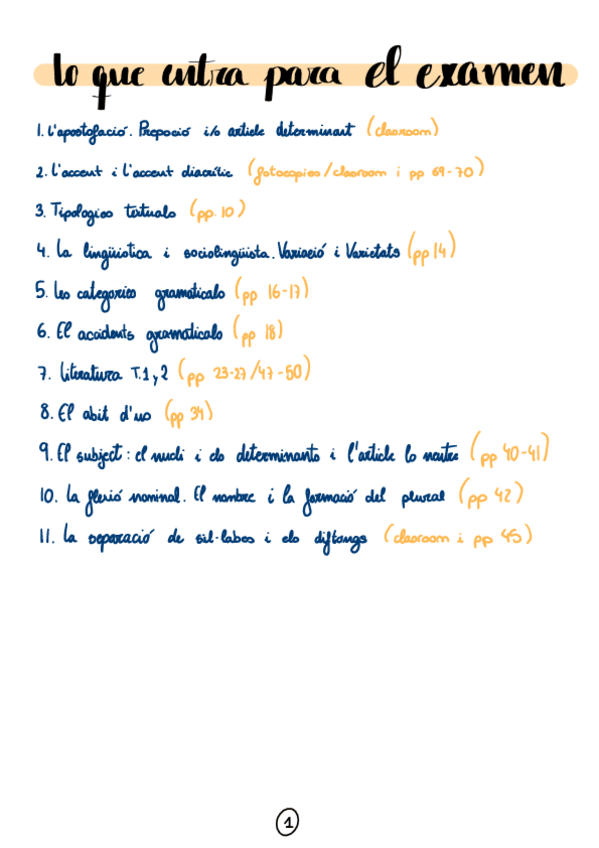 lo que entra para el examen
1. L'apostofació. Preposció i/o article determinant (classroom)
2. L'accent i l'accent diacrític (fotocopies/classroom i pp 69-70)
3. Tipologies textuals (pp. 10)
4. La lingüística i sociolingüista. Variació i Varietats (pp 14)
5. Les categories gramaticals (pp 16-17)
6. El accidents gramaticals (pp 18)
7. Literatura T.1 y 2 (pp 23-27/47-50)
8. El abit d'us (pp 34)
9. El subject: el nucli i els determinants i l'article lo neutre (pp 40-41)
10. La flexió nominal. El nombre i la formació del plural (pp 42)
11. La separació de síl·labes i els diftongs (classroom i pp 45)
1